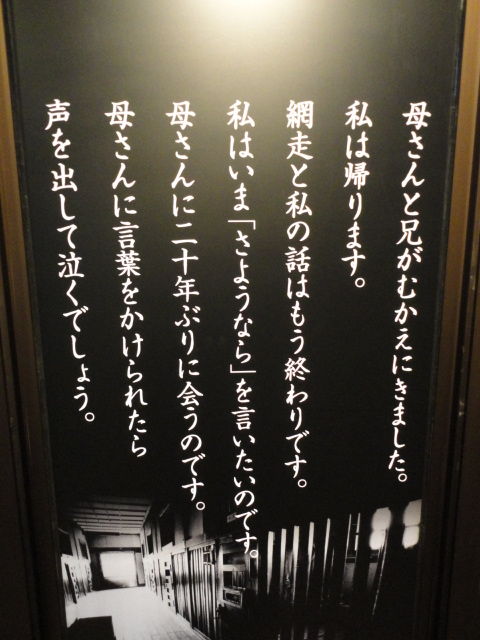 母さんと兄がむかえにきました。
私は帰ります。
網走と私の話はもう終わりです。
私はいま「さようなら」を言いたいのです。
母さんに二十年ぶりに会うのです。
母さんに言葉をかけられたら
声を出して泣くでしょう。